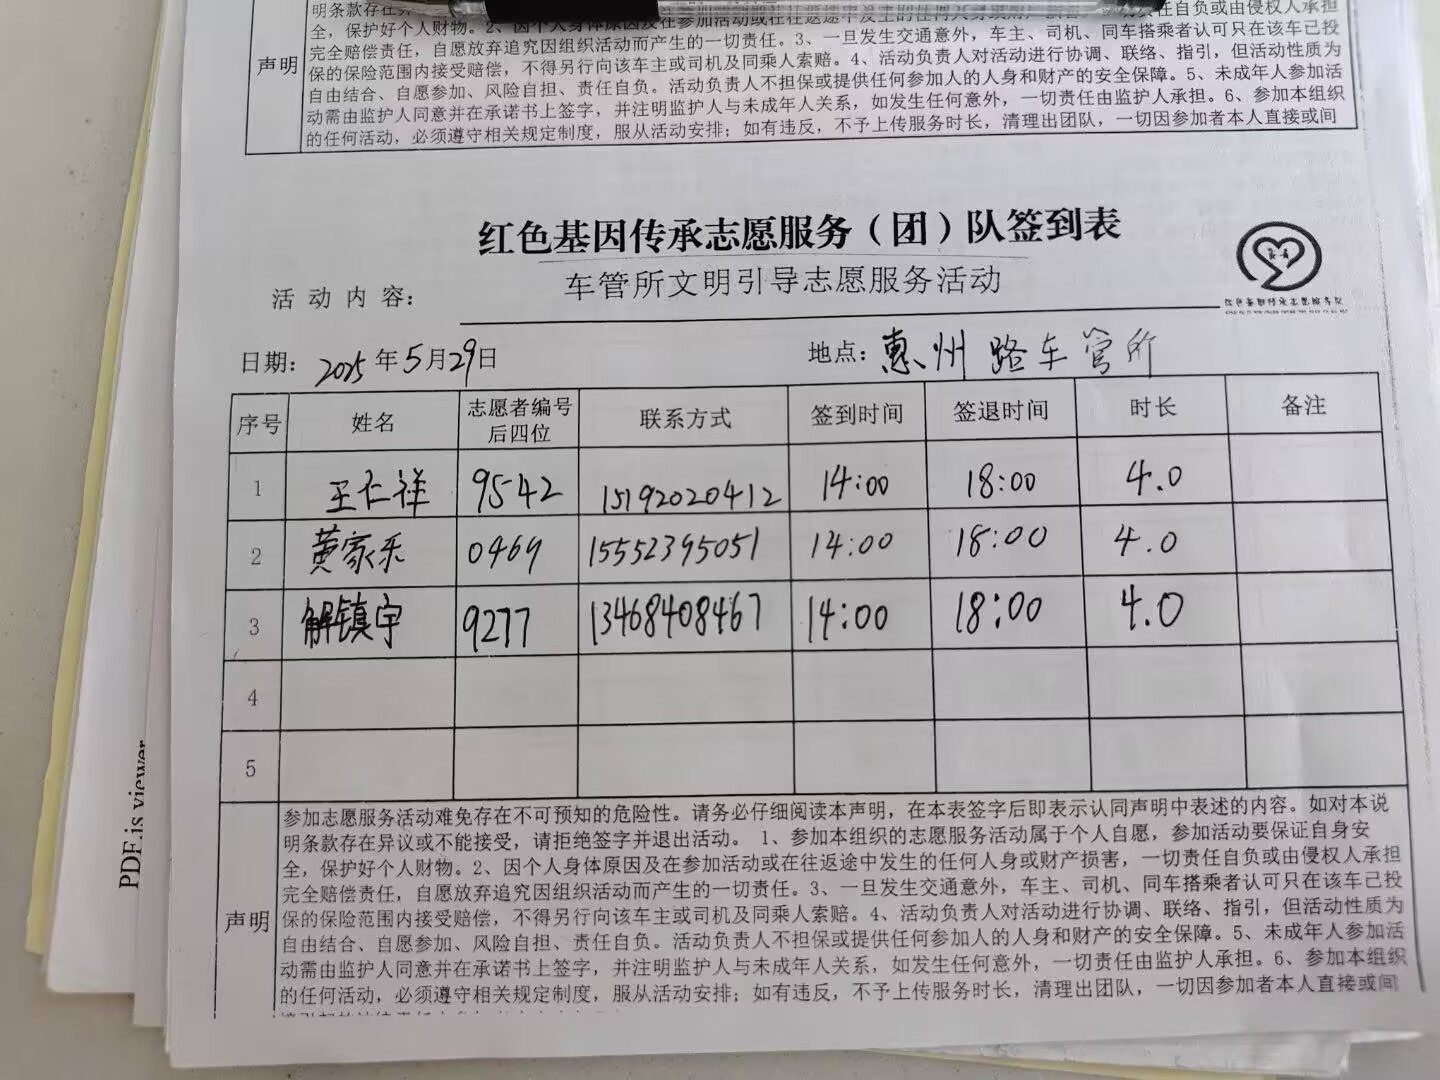 明条款存在异
全,保护好个人财物。2、因个人身体原因及在参加活动或在往返途中发生的任何人身或财产损害,一切责任自负或由侵权人承担
完全赔偿责任,自愿放弃追究因组织活动而产生的一切责任。3、一旦发生交通意外,车主、司机、同车搭乘者认可只在该车已投
声明
保的保险范围内接受赔偿,不得另行向该车主或司机及同乘人索赔。4、活动负责人对活动进行协调、联络、指引,但活动性质为
自由结合、自愿参加、风险自担、责任自负。活动负责人不担保或提供任何参加人的人身和财产的安全保障。5、未成年人参加活
动需由监护人同意并在承诺书上签字,并注明监护人与未成年人关系,如发生任何意外,一切责任由监护人承担。6、参加本组织
的任何活动,必须遵守相关规定制度,服从活动安排;如有违反,不予上传服务时长,清理出团队,一切因参加者本人直接或间
红色基因传承志愿服务(团)队签到表
活动内容: 车管所文明引导志愿服务活动
日期: 2025年5月29日 地点: 惠州路车管所
序号 姓名 志愿者编号后四位 联系方式 签到时间 签退时间 时长 备注
1 王仁祥 9542 15192020412 14:00 18:00 4.0
2 黄家乐 0469 15552395051 14:00 18:00 4.0
3 解镇宇 9277 13468408467 14:00 18:00 4.0
4
5
参加志愿服务活动难免存在不可预知的危险性。请务必仔细阅读本声明,在本表签字后即表示认同声明中表述的内容。如对本说
明条款存在异议或不能接受,请拒绝签字并退出活动。 1、参加本组织的志愿服务活动属于个人自愿,参加活动要保证自身安
全,保护好个人财物。2、因个人身体原因及在参加活动或在往返途中发生的任何人身或财产损害,一切责任自负或由侵权人承担
完全赔偿责任,自愿放弃追究因组织活动而产生的一切责任。3、一旦发生交通意外,车主、司机、同车搭乘者认可只在该车已投
声明
保的保险范围内接受赔偿,不得另行向该车主或司机及同乘人索赔。4、活动负责人对活动进行协调、联络、指引,但活动性质为
自由结合、自愿参加、风险自担、责任自负。活动负责人不担保或提供任何参加人的人身和财产的安全保障。5、未成年人参加活
动需由监护人同意并在承诺书上签字,并注明监护人与未成年人关系,如发生任何意外,一切责任由监护人承担。6、参加本组织
的任何活动,必须遵守相关规定制度,服从活动安排;如有违反,不予上传服务时长,清理出团队,一切因参加者本人直接或间
PDF.js viewer